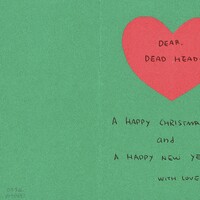 DEAR.
DEAD HEAD
A HAPPY CHRISTMA
and
A HAPPY NEW YE
WITH LOVE